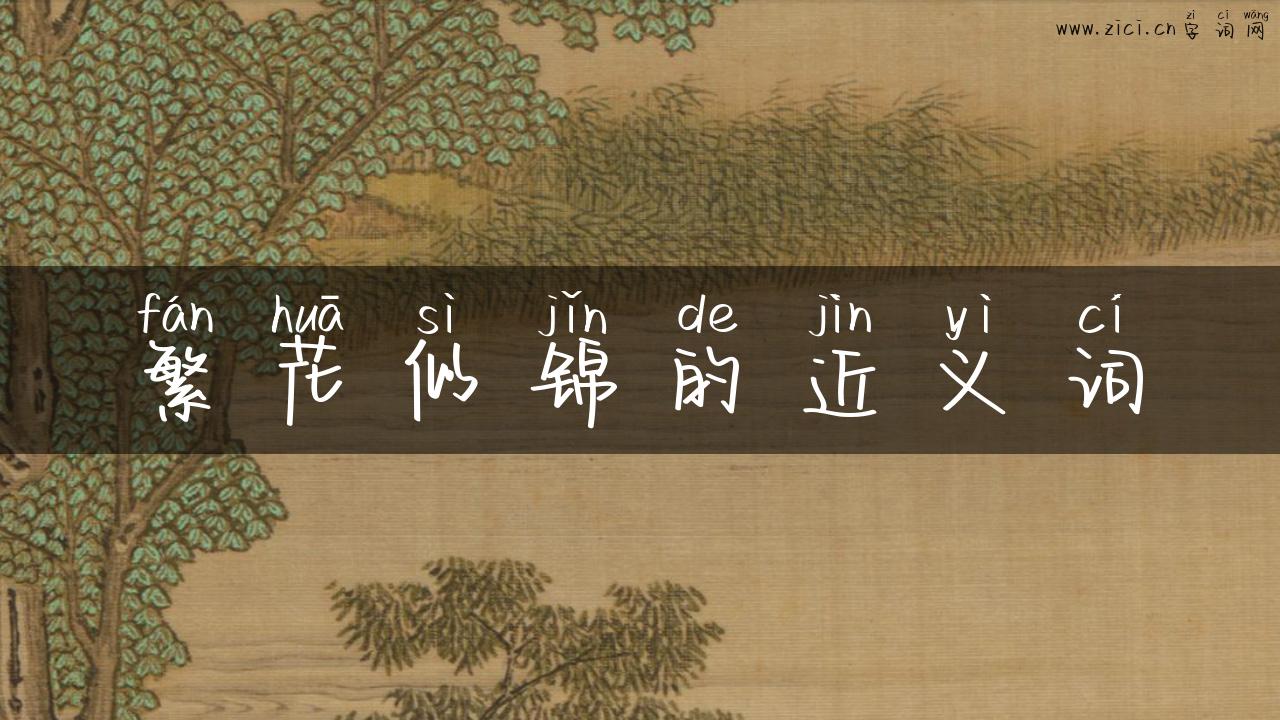 zì cí wǎng
www.zici.cn字词网
fán huā sì jǐn de jìn yì cí
繁花似锦的近义词